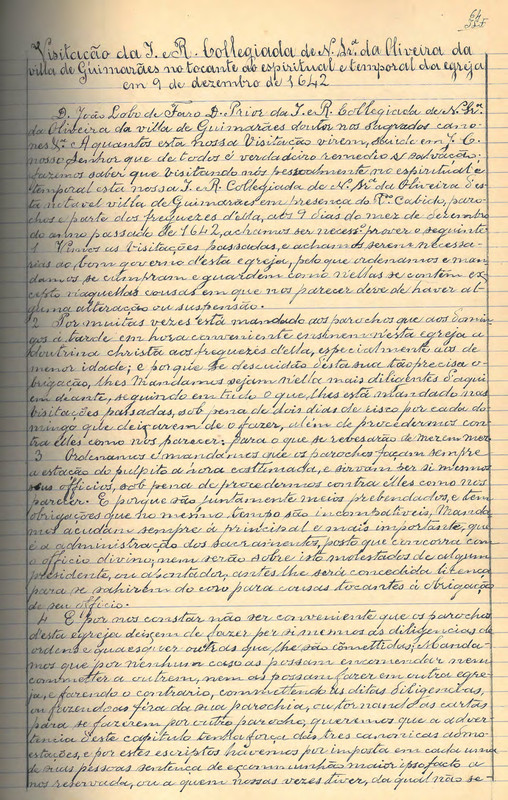 64
Visitação da I. e R. Collegiada de N. Srª. da Oliveira da
villa de Guimarães no tocante ao espiritual e temporal da egreja
em 9 de dezembro de 1642
D. João Lobo de Faro D. Prior da I. e R. Collegiada de N. Srª.
da Oliveira da villa de Guimarães doutor nos sagrados cano-
nes &ª. A quantos esta nossa Visitação virem, saude em J. C.
nosso Senhor que de todos é verdadeiro remedio & salvação:
fazemos saber que visitando nós pessoalmente no espiritual e
temporal esta nossa I. e R. Collegiada de N. Srª. da Oliveira d'es-
ta notavel villa de Guimarães em presença do Rdo. Cabido, paro-
chos e parte dos freguezes d'ella, aos 9 dias do mez de dezembro
do anno passado de 1642, achamos ser necessº. prover o seguinte
1 Vimos as visitações passadas, e achamos serem necessa-
rias ao bom governo d'esta egreja, pelo que ordenamos e man-
damos, se cumpram e guardem como n'ellas se contém ex-
cepto n'aquellas cousas em que nos parecer deve de haver al-
guma alteração ou suspensão.
2 Por muitas vezes está mandado aos parochos que aos domin-
gos á tarde em hora conveniente ensinem n'esta egreja a
doutrina christã aos freguezes d'ella, especialmente aos de
menor idade; e porque ha descuido n'esta sua tão precisa o-
brigação, lhes Mandamos sejam n'ella mais diligentes d'aqui
em deante, seguindo em tudo o que lhes está mandado nas
visitações passadas, sob pena de dois dias de risco por cada do-
mingo que deixarem de o fazer, além de procedermos con-
tra elles como nos parecer; para o que se revesarão ás
3 Ordenamos e mandamos que os parochos façam sempre
a estação do pulpito á hora costumada, e sirvam per si mesmos
seus officios, sob pena de procedermos contra elles como nos
parecer. E porque são juntamente meios prebendados, e tem
obrigações que ao mesmo tempo são incompativeis, Manda-
mos acudam sempre á principal e mais importante, que
é a administração dos sacramentos, posto que concorra com
o officio divino, nem serão sobre isto molestados de algum
presidente, ou apontador, antes lhe será concedida licença
para se sahirem do côro para cousas tocantes á obrigação
de seu officio.
4 E por nos constar não ser conveniente que os parochos
d'esta egreja deixem de fazer per si mesmos as diligencias de
ordens e quaesquer outras que lhe são commettidas; Manda-
mos que por nenhum caso as possam encomendar nem
commetter a outrem, nem as possam fazer em outra egre-
ja, e fazendo o contrario, commettendo as ditas diligencias,
ou fazendo-as fóra da sua parochia, ou tornando as cartas
para se fazerem por outro parocho, queremos que a adver-
tencia d'este capitulo tenha força das tres canonicas admo-
estações, e por estes escriptos havemos por imposta em cada uma
de suas pessoas sentença de excommunhão maior ipso facto a
nós reservada, ou a quem nossas vezes tiver, da qual não se-